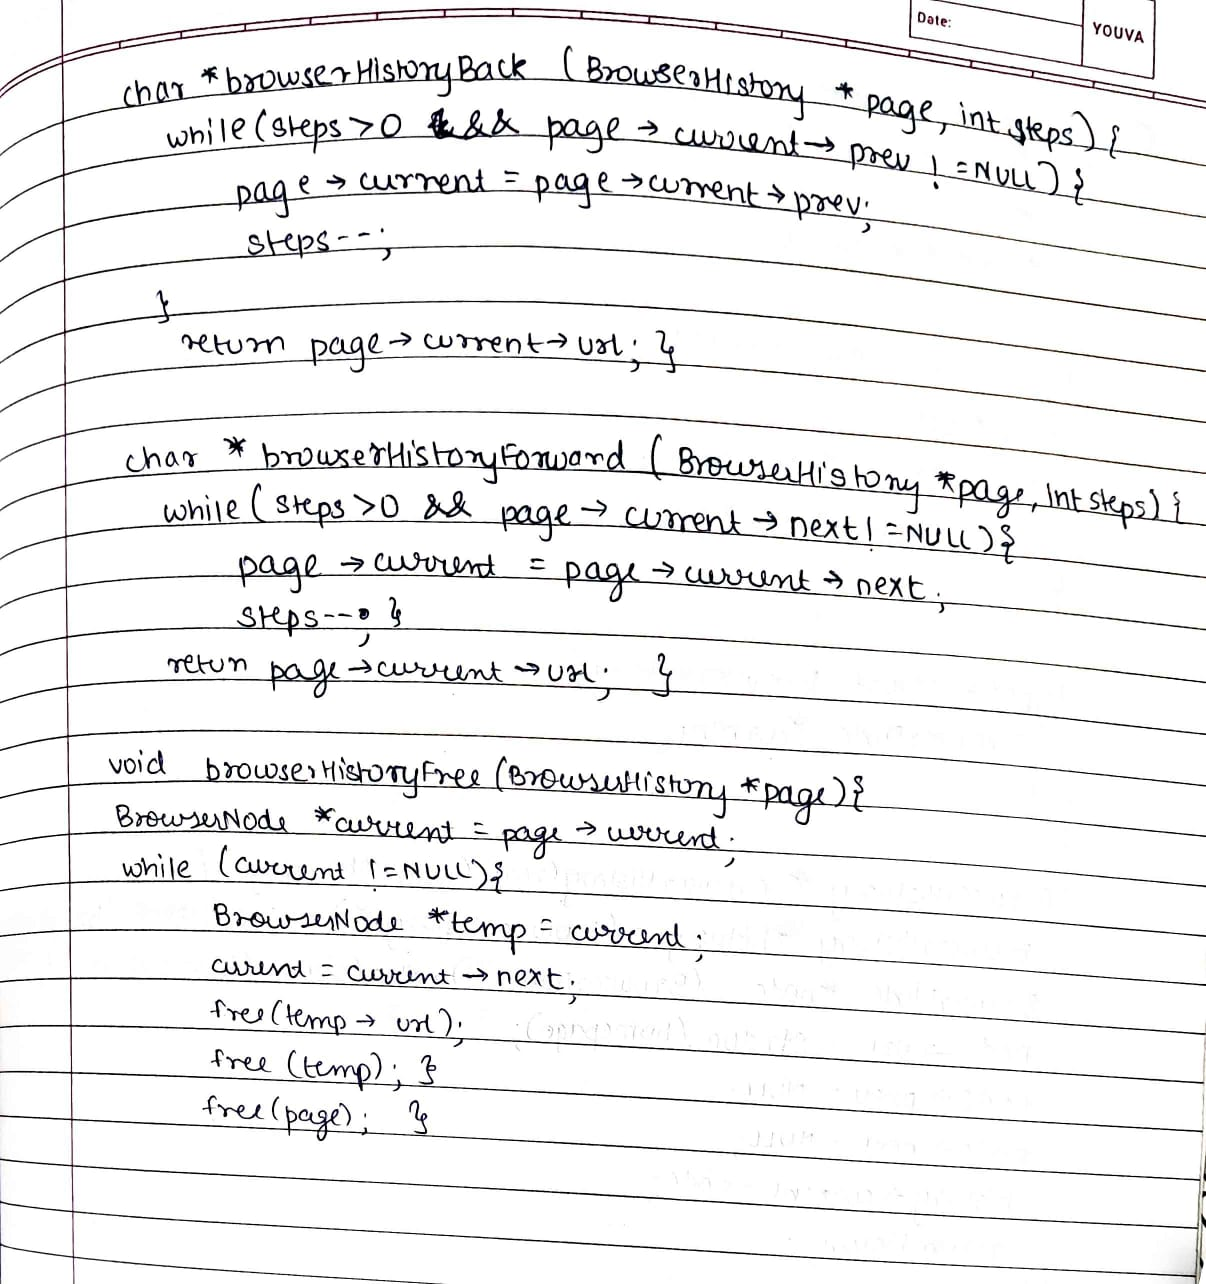 Date:
YOUVA
char *browserHistoryBack (BrowserHistory * page, int steps) {
while(steps>0 && page → current → prev != NULL) {
page → current = page → current → prev;
steps--;
}
return page → current → url; }
char * browserHistoryForward (BrowserHistory *page, int steps) {
while (steps>0 && page → current → next != NULL) {
page → current = page → current → next;
steps--; }
retun page → current → url; }
void browserHistoryFree (BrowserHistory *page) {
BrowserNode *current = page → current;
while (current != NULL) {
BrowserNode *temp = current;
current = current → next;
free (temp → url);
free (temp); }
free (page); }